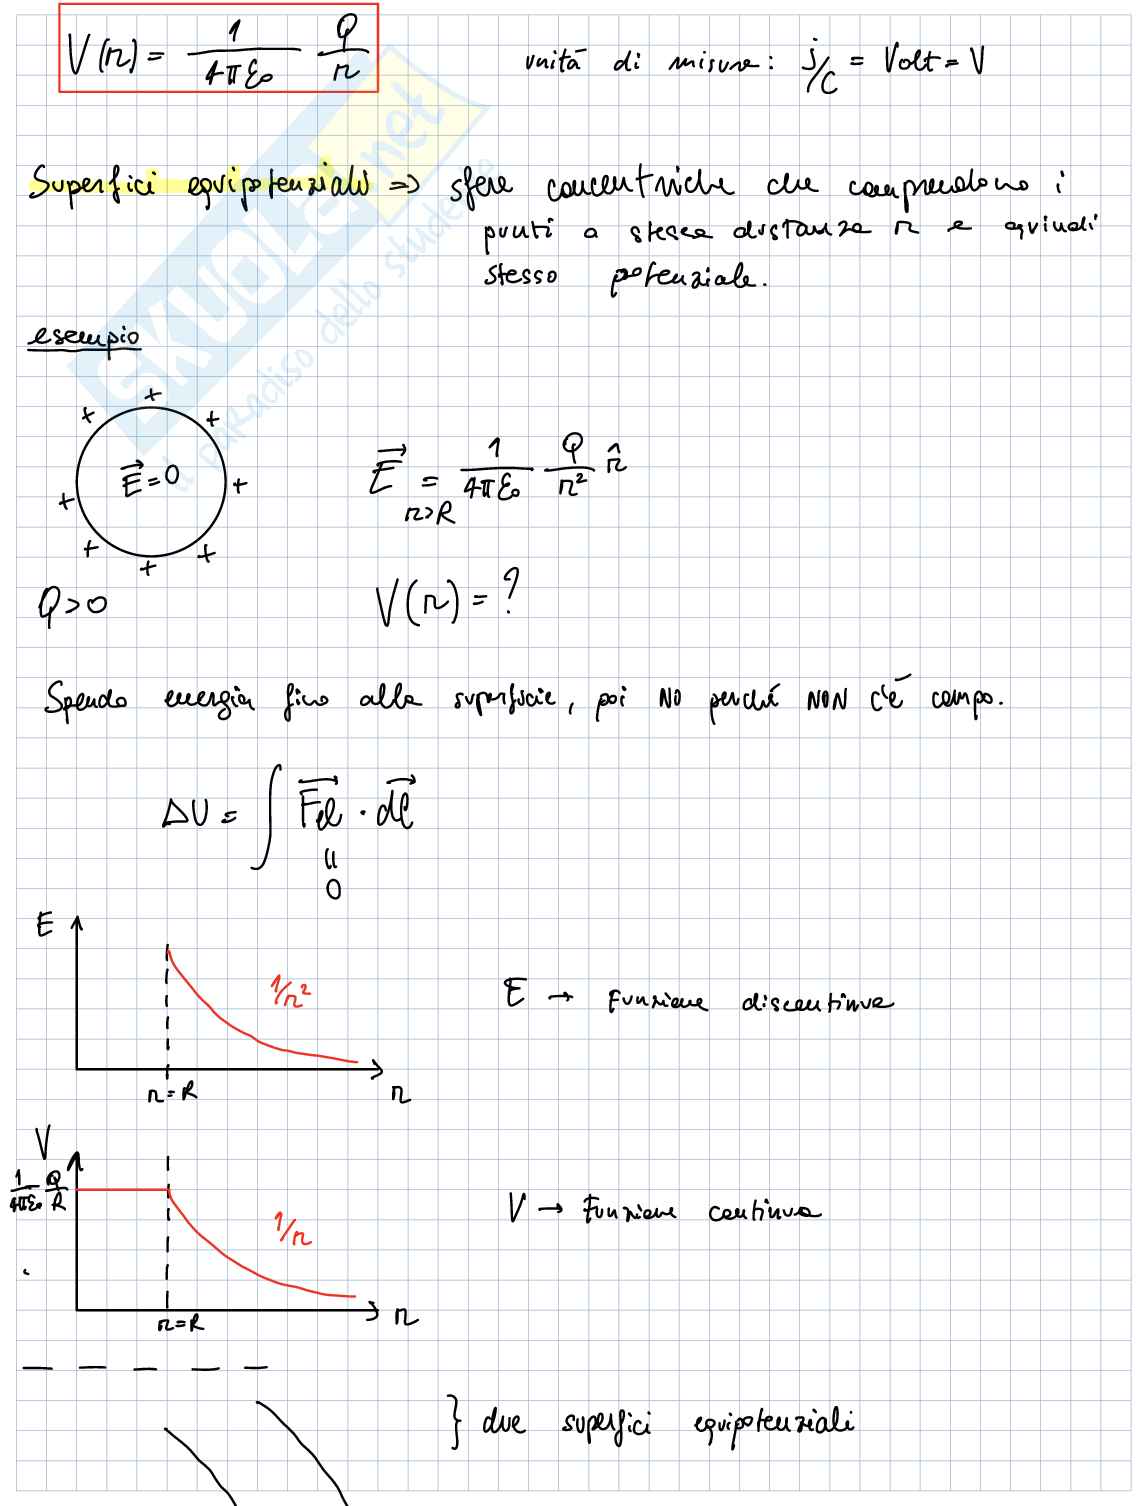 V(r) = 1/4πε₀ Q/r
unità di misura: j/C = Volt = V
Superfici equipotenziali => sfere concentriche che comprendono i
punti a stessa distanza r e quindi
stesso potenziale.
esempio
+ + + + + + + +
E⃗ = 0
E⃗ = 1/4πε₀ Q/r² r̂
r>R
Q>0
V(r) = ?
Spendo energia fino alla superficie, poi NO perché NON c'è campo.
ΔU = ∫ F⃗el · dl⃗
"
0
E
1/r²
E → Funzione discontinua
r=R
r
V
1/4πε₀ Q/R
1/r
V → Funzione continua
r=R
r
} due superfici equipotenziali
SKUOLA.net
il paradiso dello studente